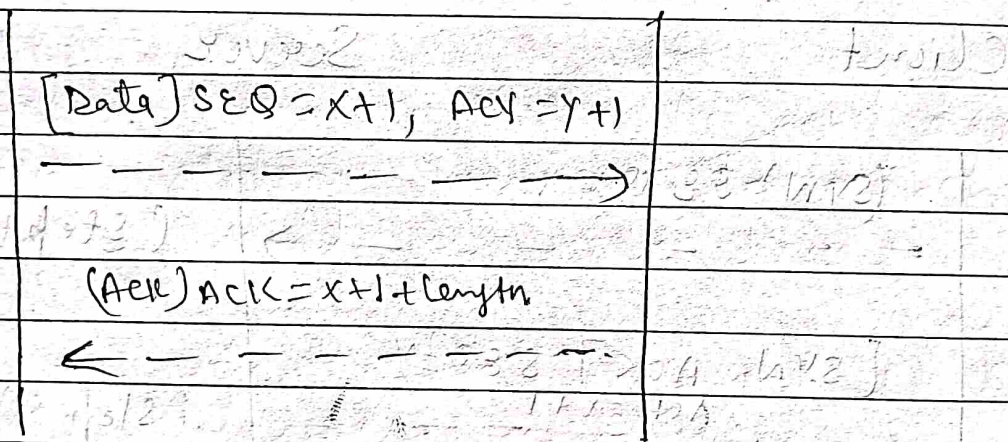 [Data] SEQ = X+1, ACK = Y+1
(ACK) ACK = X+1+length